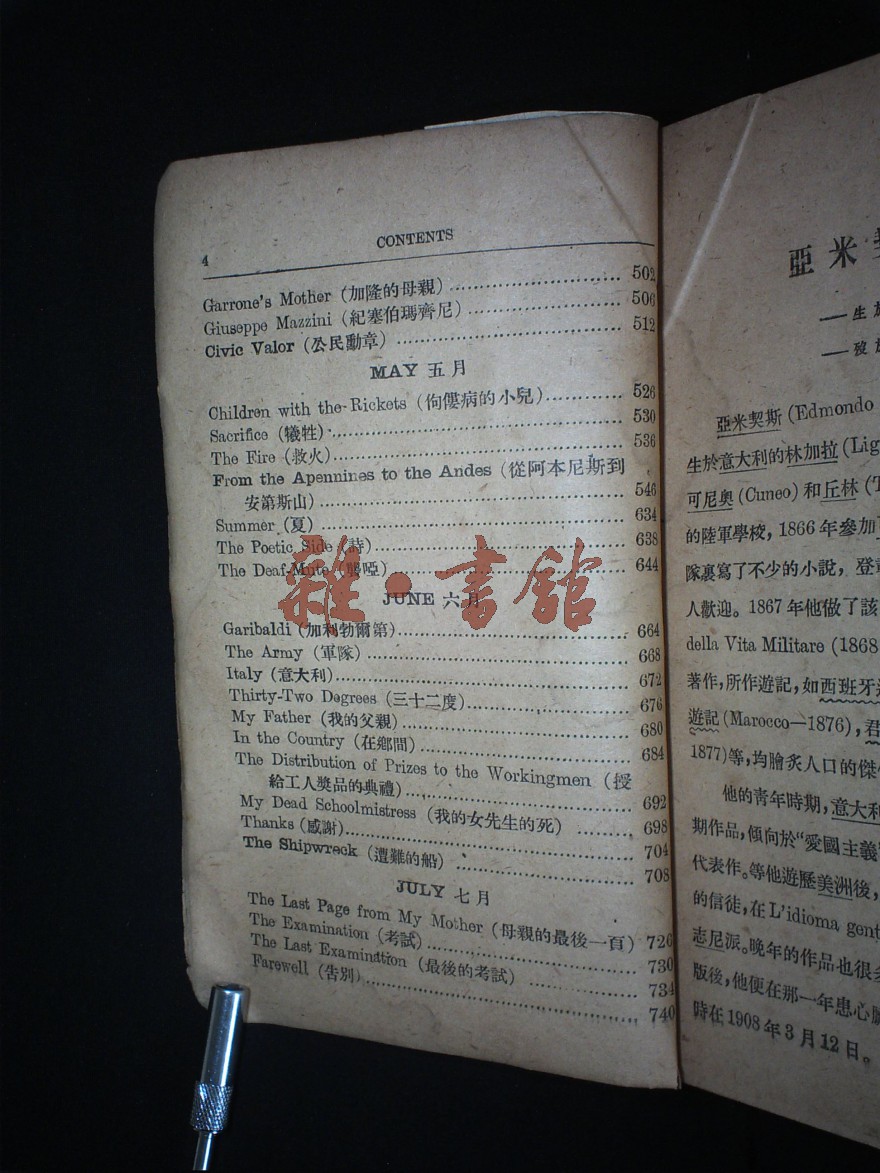 4
CONTENTS
Garrone's Mother (加隆的母親) 502
Giuseppe Mazzini (紀塞伯瑪齊尼) 506
Civic Valor (公民勳章) 512
MAY 五月
Children with the Rickets (佝僂病的小兒) 526
Sacrifice (犧牲) 530
The Fire (救火) 536
From the Apennines to the Andes (從阿本尼斯到
安第斯山) 546
Summer (夏) 634
The Poetic Side (詩) 638
The Deaf-Mute (聾啞) 644
JUNE 六月
Garibaldi (加利勃爾第) 664
The Army (軍隊) 668
Italy (意大利) 672
Thirty-Two Degrees (三十二度) 676
My Father (我的父親) 680
In the Country (在鄉間) 684
The Distribution of Prizes to the Workingmen (授
給工人獎品的典禮) 692
My Dead Schoolmistress (我的女先生的死) 698
Thanks (感謝) 704
The Shipwreck (遭難的船) 708
JULY 七月
The Last Page from My Mother (母親的最後一頁) 720
The Examination (考試) 730
The Last Examination (最後的考試) 734
Farewell (告別) 740
亞米
—生
—歿
亞米契斯 (Edmondo
生於意大利的林加拉 (Lig
可尼奧 (Cuneo) 和丘林 (T
的陸軍學校, 1866年參加
隊裏寫了不少的小說, 登
人歡迎。1867年他做了該
della Vita Militare (1868
著作,所作遊記,如西班牙
遊記 (Marocco—1876), 君
1877)等,均膾炙人口的傑
他的青年時期,意大利
期作品,傾向於“愛國主義
代表作。等他遊歷美洲後,
的信徒,在L'idioma gent
志尼派。晚年的作品也很多
版後,他便在那一年患心臟
時在1908年3月12日。
雜·書館